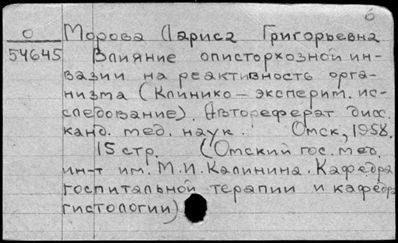 6
О Морова Лариса Григорьевна
54645 Влияние описторхозной ин-
вазии на реактивность орга-
низма (Клинико – эксперим. ис-
следование). Автореферат дисс.
канд. мед. наук. Омск, 1958.
15 стр. (Омский гос. мед.
ин-т им. М.И. Калинина. Кафедра
госпитальной терапии и кафедра
гистологии)